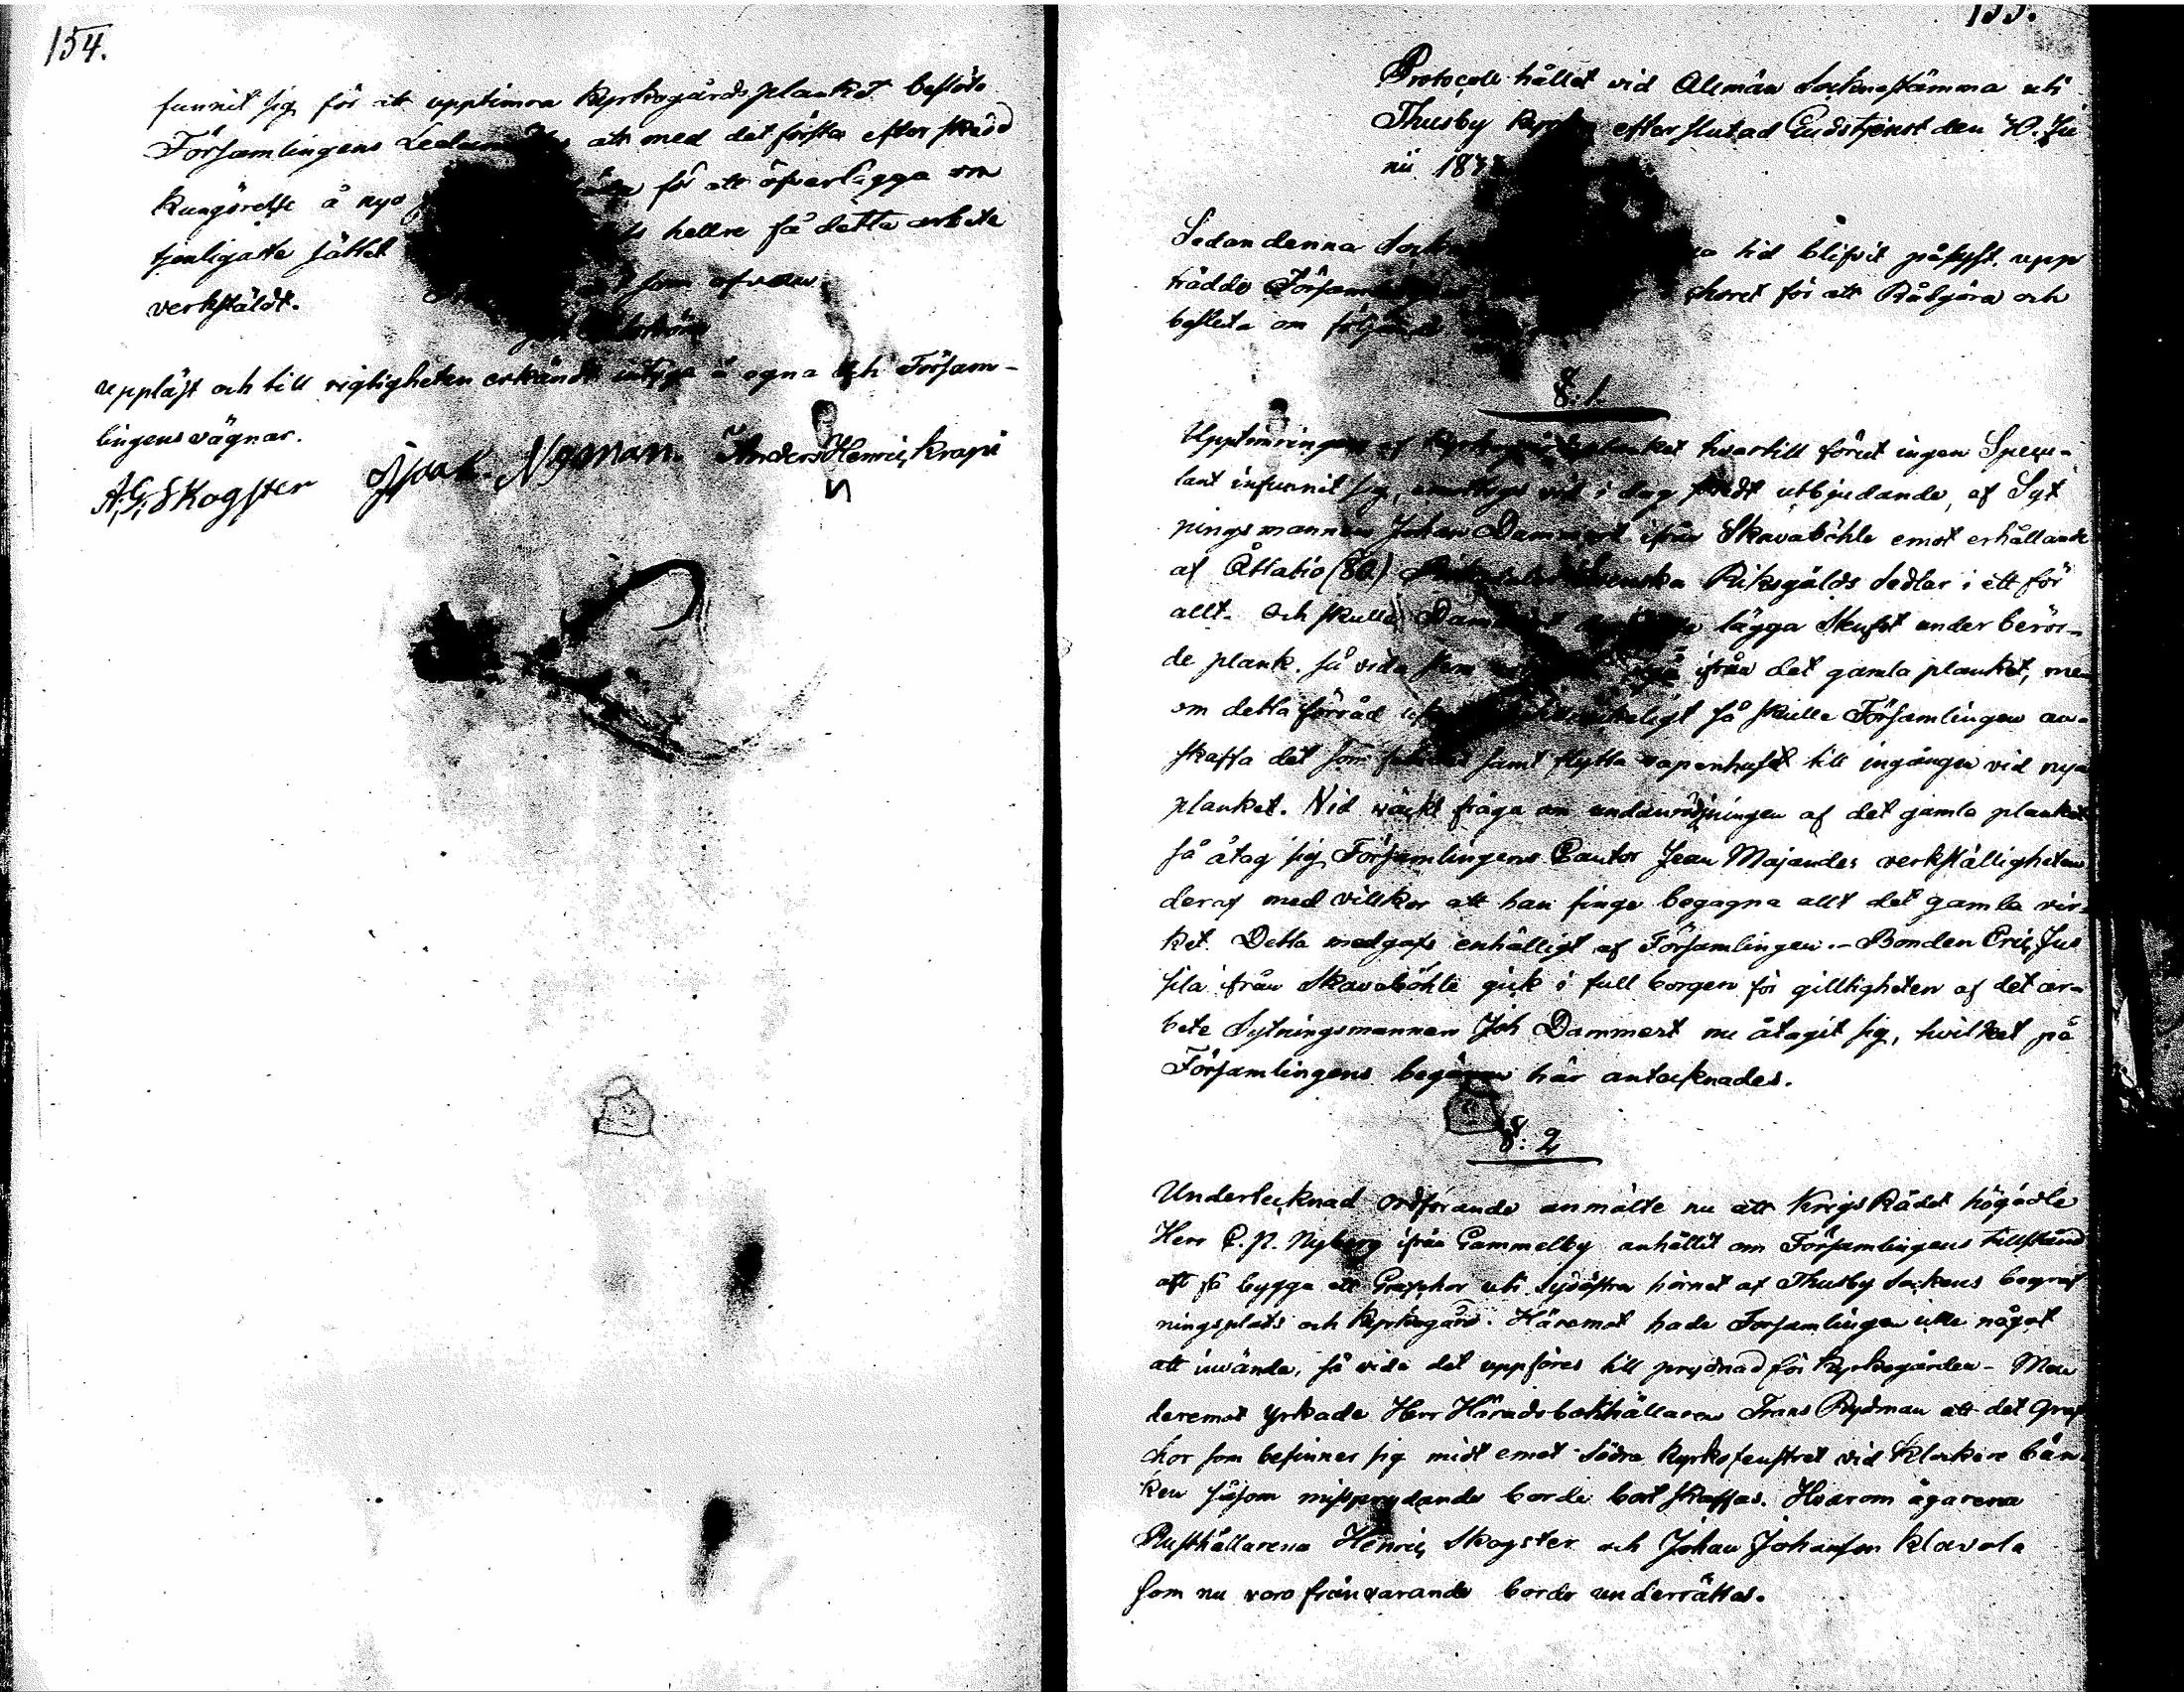 154.
funnit sig för att upptimra Kyrkogårds planket beslöto
Församlingens att med det första efter skedd
Kungörelse å nyo för att öfverlägga om
tjenligaste sättet hellre få detta arbete
verkstäldt. som ofvan
Uppläst och till rigtigheten erkändt intyga å egna och Församlingens
lingens vägnar.
A. G. Skogster Isaak Nyman. Anders Henric Krapi
155.
Protocoll hållet vid Allmän Socknestämma uti
Thusby efter slutad Gudstjenst den 10. Ju
nii
Sedan denna tid blifvit pålyst, upp
trädde choret för att Rådgöra och
besluta om
§: 1.
Upptimringen af hvartill förut ingen Specu-
lant infunnit sig, vid i dag skedt utbjudande, af Syt
ningsmannen Johan Dammert ifrån Skavaböhle emot erhållande
af Åttatio (80) Svenska Riksgälds Sedlar i ett för
allt. Och skulle lägga under berör-
de plank, så vida som ifrån det gamla planket, men
om detta förråd så skulle Församlingen an-
skaffa det som samt flytta vapenhuset till ingången vid nya
planket. Vid väckt fråga om undanrödjningen af det gamla planket
så åtog sig Församlingens Cantor Jean Majander verkställigheten
deraf med villkor att han finge begagna allt det gamla vir-
ket. Detta medgafs enhälligt af Församlingen. - Bonden Eric Jus
sila ifrån Skavaböhle gick i full borgen för gilltigheten af det ar-
bete Sytningsmannen Joh Dammert nu åtagit sig, hvilket på
Församlingens begäran här antecknades.
§: 2
Undertecknad ordförande anmälte nu att Krigs Rådet högädle
Herr C. P. Nyberg ifrån Gammelby anhållit om Församlingens tillstånd
att få bygga ett Grafchor uti sydöstra hörnet af Thusby Sockens begraf
ningsplats och Kyrkogård. Häremot hade Församlingen icke något
att invända, så vida det uppföres till prydnad för Kyrkogården - Men
deremot yrkade Herr Häradsbokhållaren Frans Rydman att det Graf
chor som befinnes sig midt emot södra Kyrksfenstret vid Klockare bän
ken såsom missprydande borde bort skaffas. Hvarom ägarena
Rusthållarena Henric Skogster och Johan Johansson Klavola
som nu voro frånvarande borde underrättas.